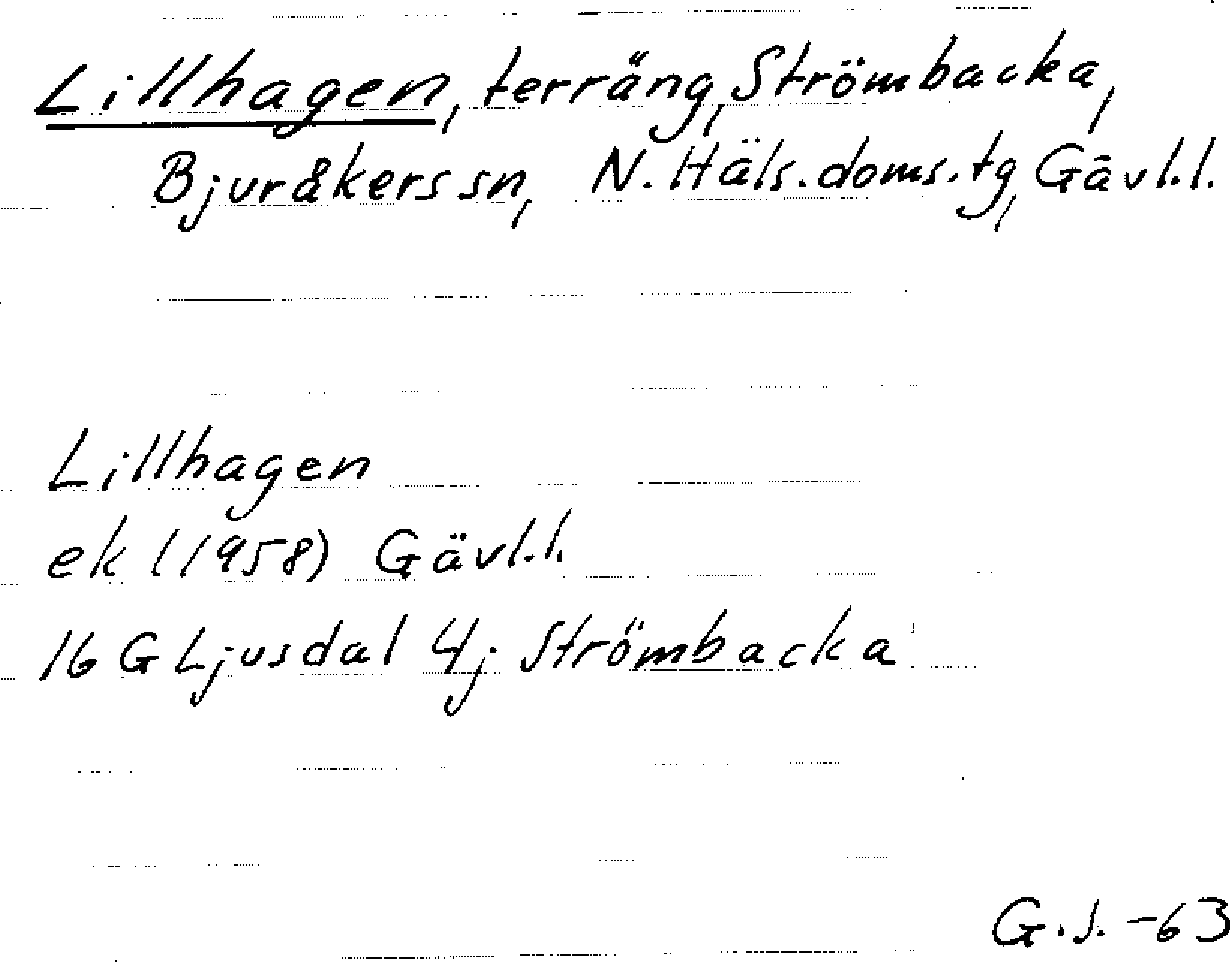 Lillhagen, terräng, Strömbacka,
Bjuråkers sn, N. Häls. doms. tg, Gävl. l.
Lillhagen
ek (1958) Gävl. l.
16 G Ljusdal 4j Strömbacka
G. J. -63